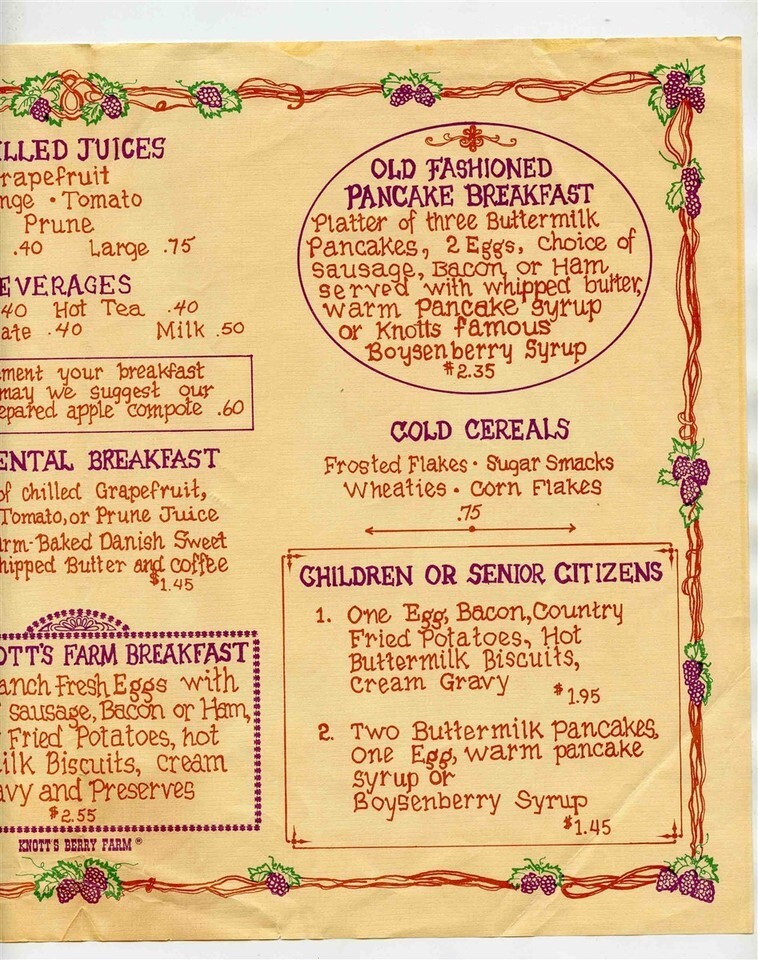 ILLED JUICES
rapefruit
nge · Tomato
Prune
.40 Large .75
EVERAGES
40 Hot Tea .40
ate .40 Milk .50
ment your breakfast
may we suggest our
epared apple compote .60
ENTAL BREAKFAST
of chilled Grapefruit,
Tomato, or Prune Juice
arm-Baked Danish Sweet
hipped Butter and coffee
$1.45
OTT'S FARM BREAKFAST
anch Fresh Eggs with
sausage, Bacon or Ham,
Fried Potatoes, hot
ilk Biscuits, cream
avy and Preserves
$2.55
KNOTT'S BERRY FARM ®
OLD FASHIONED
PANCAKE BREAKFAST
Platter of three Buttermilk
Pancakes, 2 Eggs, choice of
sausage, Bacon or Ham
served with whipped butter,
warm pancake syrup
or Knotts famous
Boysenberry Syrup
$2.35
COLD CEREALS
Frosted Flakes · Sugar Smacks
Wheaties · Corn Flakes
.75
CHILDREN OR SENIOR CITIZENS
1. One Egg, Bacon, Country
Fried Potatoes, Hot
Buttermilk Biscuits,
Cream Gravy $1.95
2. Two Buttermilk Pancakes,
One Egg, warm pancake
syrup or
Boysenberry Syrup
$1.45